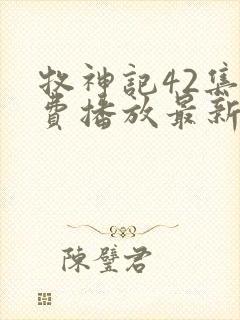 牧神記42集
費播放最新
陳璧君